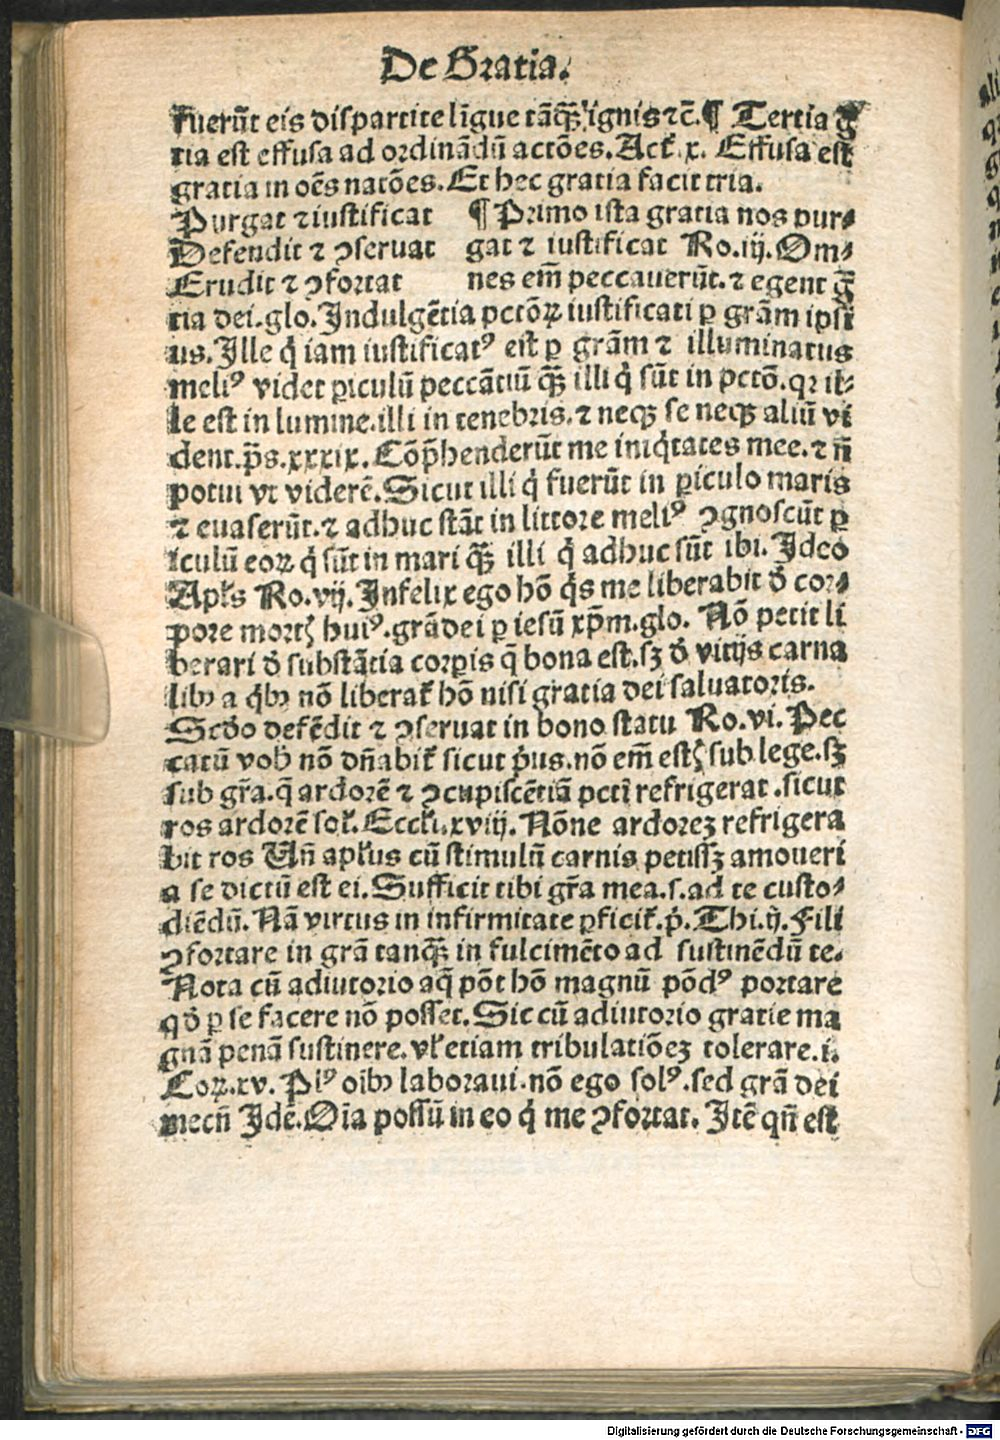 De Gratia.
fuerūt eis dispartite līgue tāqȝ ignis ⁊c̄. ¶ Tertia ḡ
tia est effusa ad ordinādū actōes. Act. x. Effusa est
gratia in oēs natōes. Et hec gratia facit tria.
Purgat ⁊ iustificat
Defendit ⁊ ꝯseruat
Erudit ⁊ ꝯfortat
¶ Primo ista gratia nos pur⸗
gat ⁊ iustificat Ro. iij. Om⸗
nes em̄ peccauerūt. ⁊ egent ḡ
tia dei. glo. Indulgētia pctōꝝ iustificati ꝑ grām ipsi
us. Ille q̇ iam iustificatꝰ est ꝑ grām ⁊ illuminatus
meliꝰ videt ꝑiculū peccātiū qȝ illi q̇ sūt in pctō. qꝛ il⸗
le est in lumine. illi in tenebris. ⁊ neqȝ se neqȝ aliū vi
dent. p̄s. xxxix. Cōp̄henderūt me iniq̇tates mee. ⁊ n̄
potui vt viderē. Sicut illi q̇ fuerūt in ꝑiculo maris
⁊ euaserūt. ⁊ adhuc stāt in littore meliꝰ ꝯgnoscūt ꝑ
iculū eoꝝ q̇ sūt in mari qȝ illi q̇ adhuc sūt ibi. Ideo
Apl̄s Ro. vij. Infelix ego hō q̇s me liberabit d̄ cor⸗
pore mortꝭ huiꝰ. grā dei ꝑ iesū xp̄m. glo. Nō petit li
berari d̄ substātia corꝑis q̄ bona est. sȝ d̄ vitijs carna
libꝰ a q̇bꝰ nō liberat̄ hō nisi gratia dei saluatoris.
Scd̄o defēdit ⁊ ꝯseruat in bono statu Ro. vi. Pec
catū vob̄ nō dn̄abit̄ sicut ṗus. nō em̄ estꝭ sub lege. sȝ
sub gr̄a. q̄ ardorē ⁊ ꝯcupiscētiā pcti refrigerat. sicut
ros ardorē sol̄. Eccl̄i. xviij. Nōne ardoreȝ refrigera
bit ros Vn̄ apl̄us cū stimulū carnis petissȝ amoueri
a se dictū est ei. Sufficit tibi gr̄a mea. s. ad te custo⸗
diēdū. Nā virtus in infirmitate ꝑficit̄. ṗ. Thi. ij. Fili
ꝯfortare in grā tanqȝ in fulcimēto ad sustinēdū te.
Nota cū adiutorio aq̄ pōt hō magnū pōdꝰ portare
qd̄ ꝑ se facere nō posset. Sic cū adiutorio gratie ma
gnā penā sustinere. vl̄ etiam tribulatiōeȝ tolerare. i.
Coꝝ. xv. Plꝰ oibꝰ laboraui. nō ego solꝰ. sed grā dei
mecū Idē. Oīa possū in eo q̇ me ꝯfortat. Itē qn̄ est
Digitalisierung gefördert durch die Deutsche Forschungsgemeinschaft - DFG